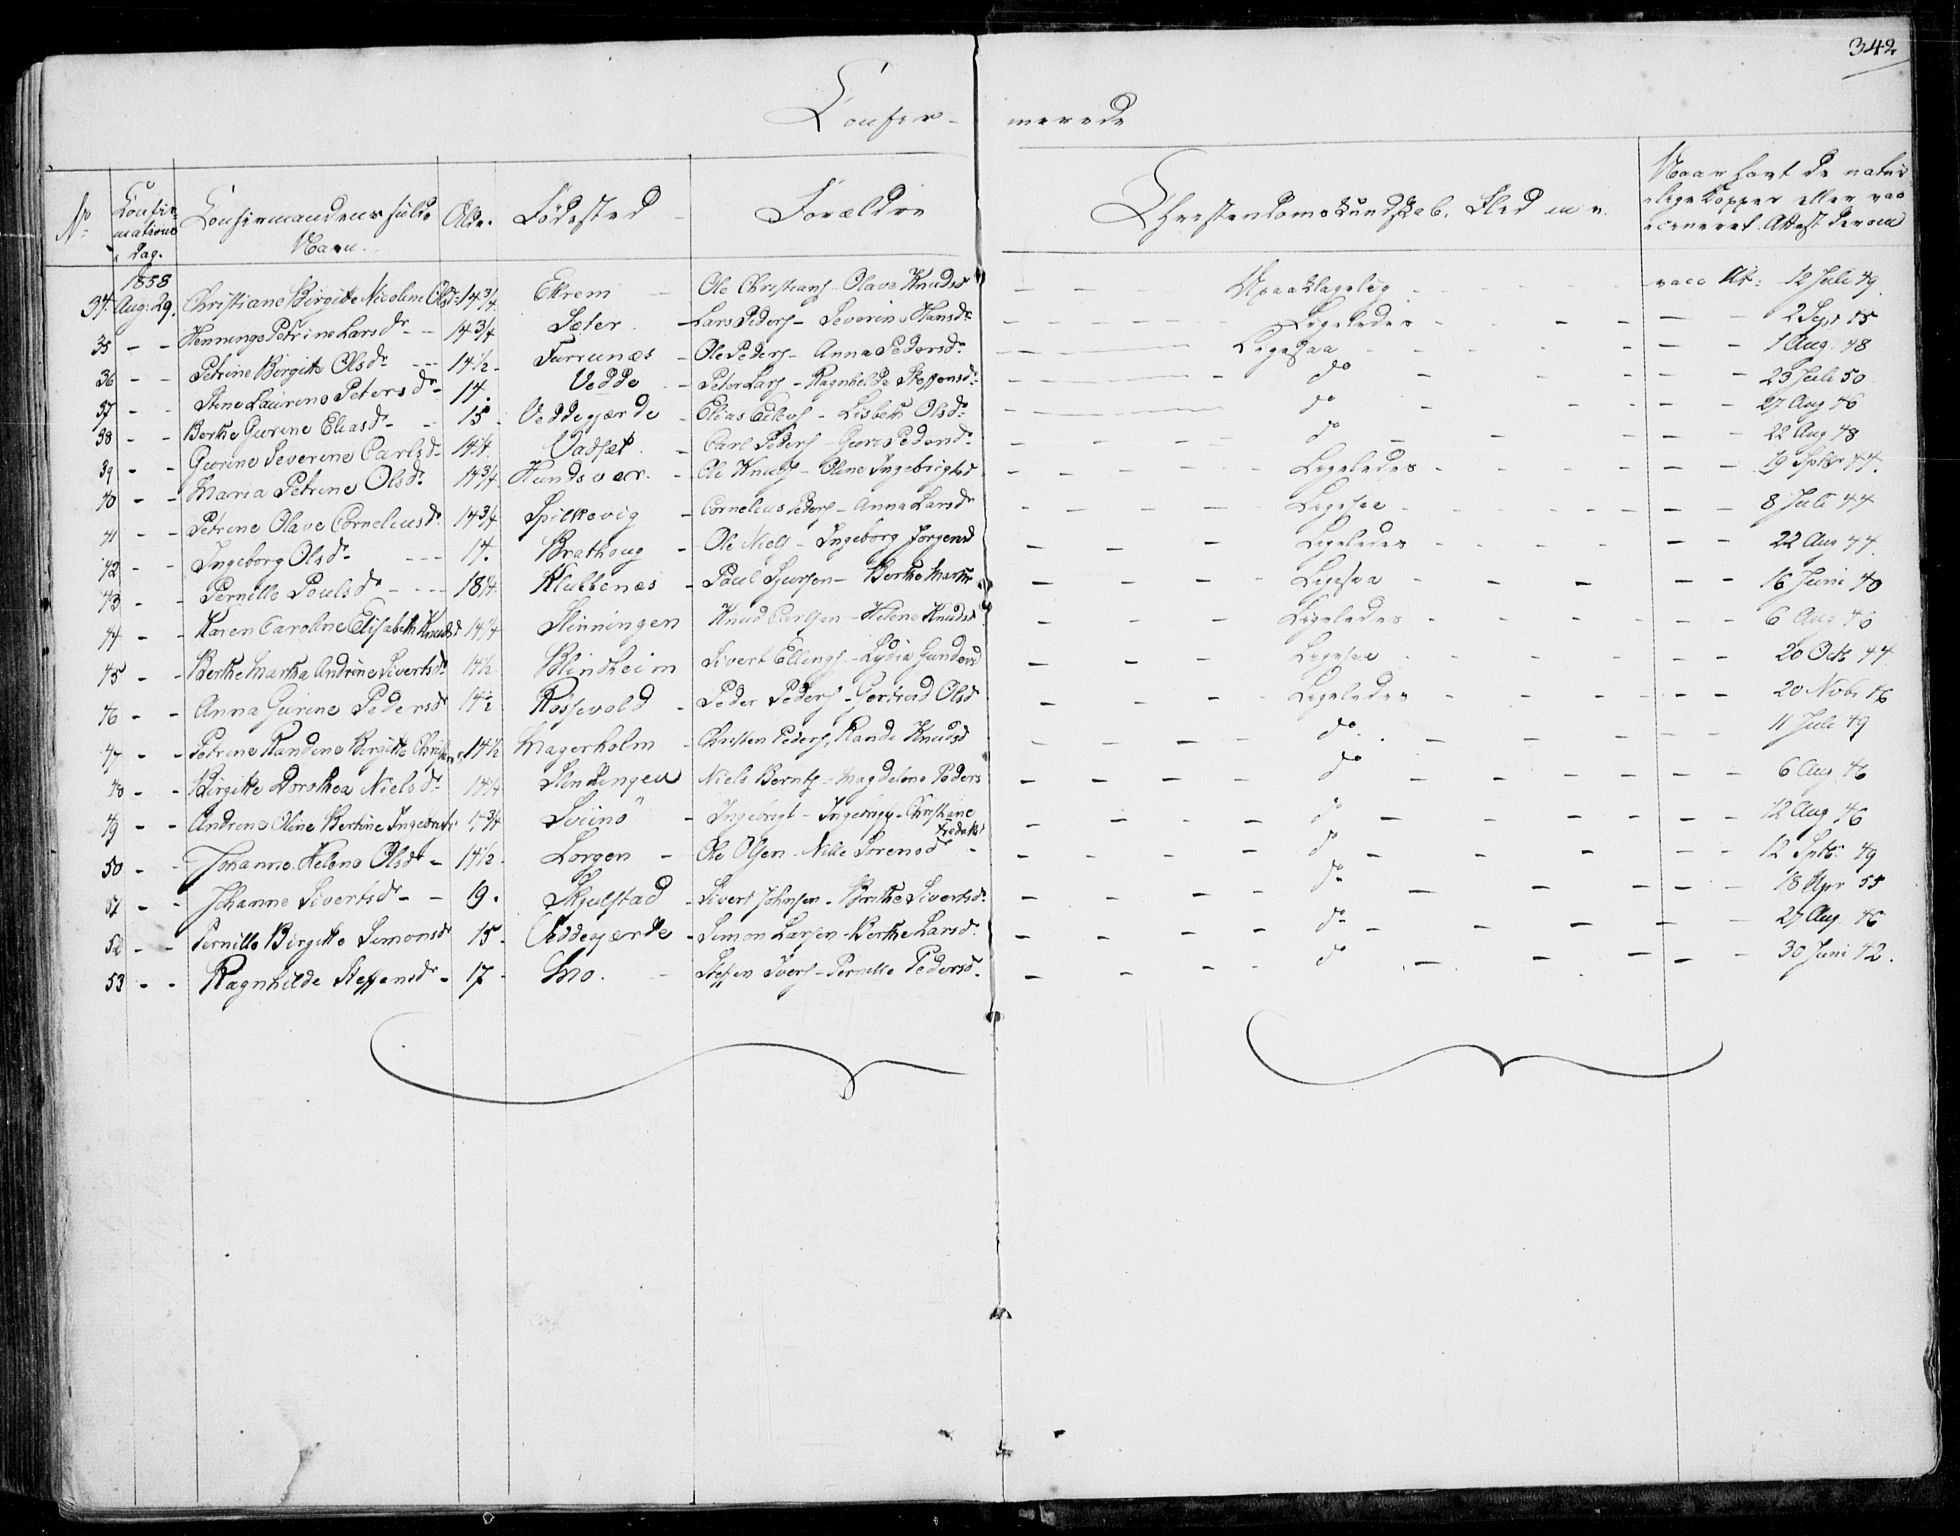 342
Confir- merede
No Confirmations Dag. Confirmandens fulde Navn. Alder Fødested Forældre Christendomskundskab, Flid m. v. Naar havt de naturlige Kopper eller vaccineret. Attest derom
1858
34. Aug. 29. Christiane Birgitte Nicoline Olsdr 14 3/4 Ekrem Ole Christians - Olave Knudsd - - Upaaklagelig - - vacc At: 12 Juli 49.
35 - - Henninge Petrine Larsdr - - 14 3/4 Sæter - Lars Peders - Severine Hansdr - - Ligeledes - - 2 Sept 45
36 - - Petrine Birgitte Olsdr - - 14 1/2 - Furrunæs - Ole Peders - Anna Pedersdr - - Ligesaa - - 1 Aug. 48
37 - - Stine Laurine Petersdr - 14. Vedde - Peter Lars - Ragnhilde Steffensdr - - do - - 23 Juli 50
38 - - Berthe Gurine Eliasdr - - 15 - Veddegjærde - Elias - Lisbeth Olsdr - - do - - 27 Aug 46
39 - - Gurine Severine Carlsdr - 14 1/4 Vadset - Carl Peders - Guri Pedersdr - - do - - 22 Aug 48
40 - - Maria Petrine Olsdr 14 3/4 Hundsvær. - Ole Knuds - Oline Ingebrigtsd - - Ligeledes - - 19 Sptbr 44.
41 - - Petrine Olave Corneliusdr 14 3/4 Spilkevig - Cornelius Peders - Anna Larsdr - - Ligesaa - - 8 Juli 44
42 - - Ingeborg Olsdr - - 14. Brathoug - Ole Niels - Ingeborg Jørgensd - - Ligeledes - - 22 Aug 44.
43 - - Pernille Poulsdr - - 18 1/4 Klubbenæs - Poul Sjursen - Berthe Marthe - - Ligesaa - - 16 Juni 40
44 - - Karen Caroline Elisabeth Knudsd 14 1/4 Slinningen Knud Carlsen - Helene Knudsd - - Ligeledes - - 6 Aug 46
45 - - Berthe Martha Andrine Sivertsdr 14 1/2 Blindheim Sivert Ellings - Lydia Gundersd - - Ligesaa - - 20 Octb 44
46 - - Anna Gurine Pedersdr 14 1/2 Røssevold - Peder Peders - Gertrud Olsd - - Ligeledes - - 20 Novbr 46
47 - - Petrine Randine Birgitte 14 1/2 Magerholm - Christen Peders, Rande Knudsd - - do - - 11 Juli 49
48 - - Birgitte Dorothea Nielsdr 14 1/4 Slinningen Niels Bernts - Magdelene Peders - - do - - 6 Aug 46
49 - - Andrine Oline Bertine Sviinø - Ingebrigt - Christiane - - do - - 12 Aug 46
50 - - Johanne Helene Olsdr - 14 1/2 - Lorgen - Ole Olsen - Nille Sørensdr - - - do - - 12 Sptbr 49
51 - - Johanne Sivertsdr - - 19. Skjulstad - Sivert Johnsen - Brithe Sivertsdr - - do - - 18 Apr 55
52 - - Pernille Birgitte Simonsdr 15 - Veddegjærde - Simon Larsen - Berthe Larsd. - - do - - 27 Aug 46
53 - - Ragnhilde Steffensdr - 17 - Mo. - Steffen Ivers - Pernille Pedersd. - - do - - 30 Juni 42.